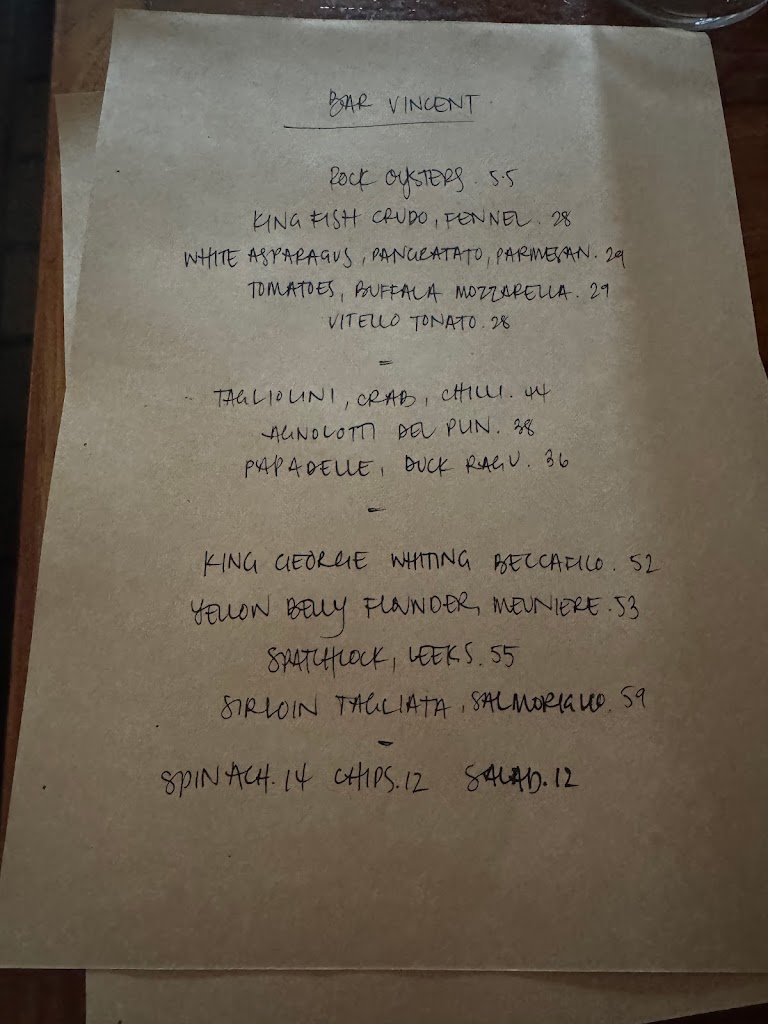 BAR VINCENT
ROCK OYSTERS. 5.5
KING FISH CRUDO, FENNEL. 28
WHITE ASPARAGUS, PANGRATATO, PARMESAN. 29
TOMATOES, BUFFALA MOZZARELLA. 29
VITELLO TONATO. 28
-
TAGLIOLINI, CRAB, CHILLI. 44
AGNOLOTTI DEL PLIN. 38
PAPADELLE, DUCK RAGU. 36
-
KING GEORGE WHITING BECCAFICO. 52
YELLOW BELLY FLOUNDER, MEUNIERE. 53
SPATCHLOCK, LEEKS. 55
SIRLOIN TAGLIATA, SALMORIGLIO. 59
-
SPINACH. 14 CHIPS. 12 SALAD. 12